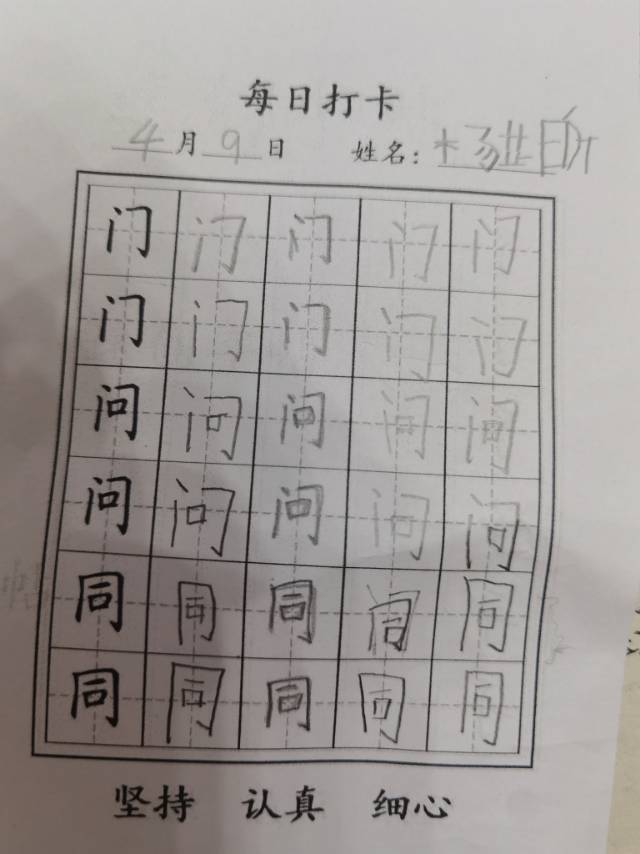 每日打卡
4月9日 姓名:
门门门门门
门门门门门
问问问问问
问问问问问
同同同同同
同同同同同
坚持 认真 细心